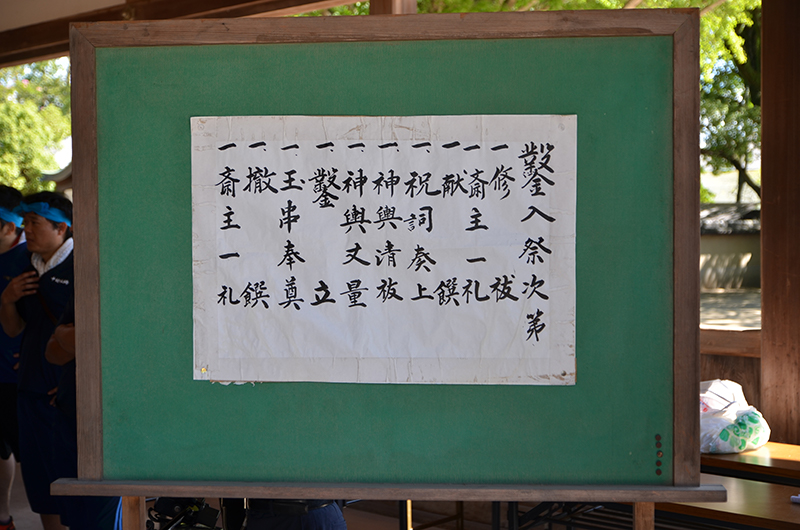 鑿入祭次第
一、修祓
一、斎主一礼
一、献饌
一、祝詞奏上
一、神輿清祓
一、神輿丈量
一、鑿立
一、玉串奉奠
一、撤饌
一、斎主一礼